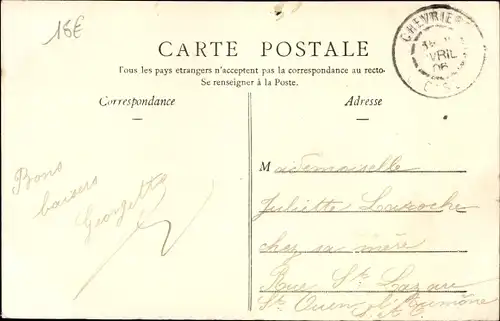 16€
CARTE POSTALE
Tous les pays etrangers n'acceptent pas la correspondance au recto-
Se renseigner à la Poste.
Correspondance
Adresse
CHEVRIE
AVRIL
06
OISE
Bons
baisers
Georgette
Mademoiselle
Juliette Laroche
chez sa mère
Rue St Lazare
St Ouen l'Aumône
S. et O.